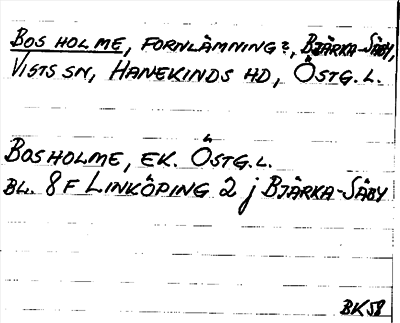 BOSHOLME, FORNLÄMNING?, BJÄRKA-SÄBY,
VISTS SN, HANEKINDS HD, ÖSTG. L.
BOSHOLME, EK. ÖSTG. L.
BL. 8F LINKÖPING 2 j BJÄRKA-SÄBY
BK58